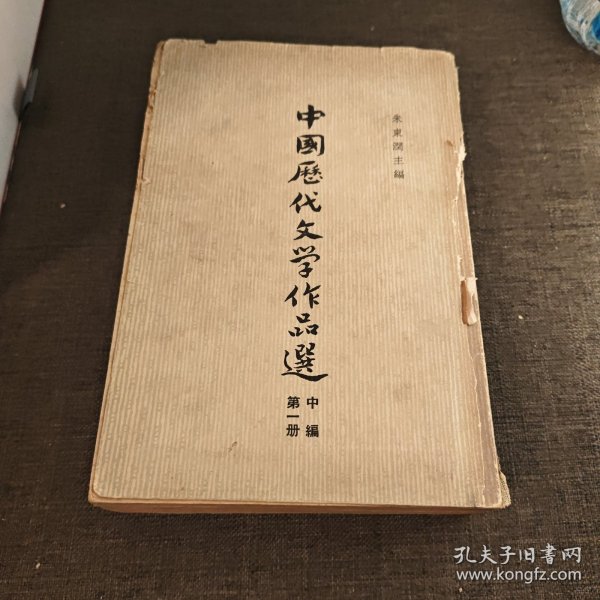 朱東潤主編
中國歷代文学作品選
中編
第一册
孔夫子旧书网
www.kongfz.com